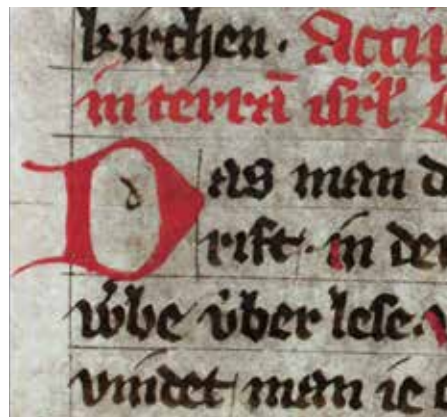 kirchen. Accip
in terrā isrl̄
Das man d
rift. in der
wͦbe v̊ber lese. v
vindet man ie